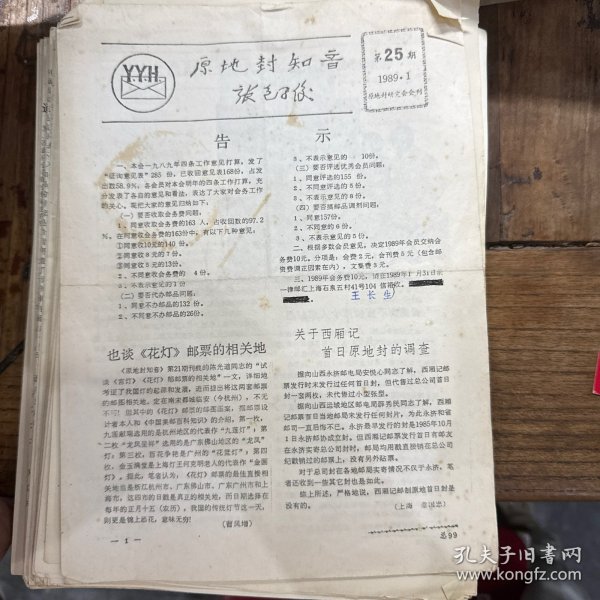 YYH
原地封知音
第25期
1989·1
原地封研究会会刊
告 示
一、本会一九八九年四条工作意见打算,发了
“征询意见表”285份,已收回意见表168份,占发
出数58.9%,各会员对本会明年的四条工作打算,充
分发表了各自的意见和看法,表达了大家对会务工作
的关心。现把大家的意见归纳如下:
(一)要否收取会务费问题:
1、同意收取会务费的163人,占收回数的97.2
%。在同意收取会务费的163份中,有以下几种意见:
①同意收10元的140份。
②同意收8元的7份。
③同意收5元的13份。
2、不同意收会务费的 4份。
3、不表示意见的1份
(二)要否代办邮品问题:
1、同意不办邮品的132份
2、不同意不办邮品的26份。
3、不表示意见的 10份。
(三)要否评选优秀会员问题:
1、同意评选的155份。
2、不同意评选的5份。
3、不表示意见的8份。
(四)要否搞邮品调剂问题:
1、同意137份。
2、不同意的6份。
3、不表示意见的5份。
二、根据多数会员意见,决定1989年会员交纳会
务费10元。分项是:会费2元,会刊费5元(包含邮
资费调正因素在内),文集费3元。
三、1989年会务费10元,请在1989年1月31日前
一律邮汇上海石泉五村41号104
王长生
也谈《花灯》邮票的相关地
《原地封知音》第21期刊载的陈光道同志的“试
谈《宫灯》《花灯》邮票的相关地”一文,详细地
考证了我国灯的起源和发展,进而提出将这两套邮票
的邮图相关地,定在南宋都城临安(今杭州),不无
不可!但其中的《花灯》邮票的邮票图案,据邮票设
计者本人和《中国集邮百科知识》的介绍,第一枚,
九莲献瑞选用的是杭州地区的代表作“九莲灯”;第
二枚“龙凤呈祥”选用的是广东佛山地区的“龙凤”
灯;第三枚,百花争艳是广州的“花篮灯”;第四
枚,金玉满堂是上海灯王何克明老人的代表作“金圆
灯》。据此,笔者认为,《花灯》邮票的最佳直接相
关地当是浙江杭州市、广东佛山市、广东广州市和上
海市,这四市的日戳是真正的相关地,而日期选择在
每年的正月十五(农历),我国的传统灯节这一天,
则更是锦上添花,意味无穷!
(曹凤增)
关于西厢记
首日原地封的调查
据向山西永济县邮电局安悦心同志了解,西厢记邮
票发行时未发行过任何首日封,但代售过总公司首日
封一套两枚,未代售过小型张型。
据向山西运城地区邮电局薛秀民同志了解,西厢
记邮票首日当地邮局未发行任何封片,为此永济和省
邮司一直后悔不已。永济最早发行的封是1985年10月
1日永济邮协成立封。但西厢记邮票发行首日有邮友
在永济实寄总公司封时,邮局均用戳直接销在总公司
纪戳销过的邮票上,没有另外贴票。
对于总司封在各地邮局实寄情况不仅于永济,笔
者还收到一些其它封也是如此。
综上所述,严格地说,西厢记邮创原地首日封是
没有的。
— 1 —
总99
孔夫子旧书网
www.kongfz.com